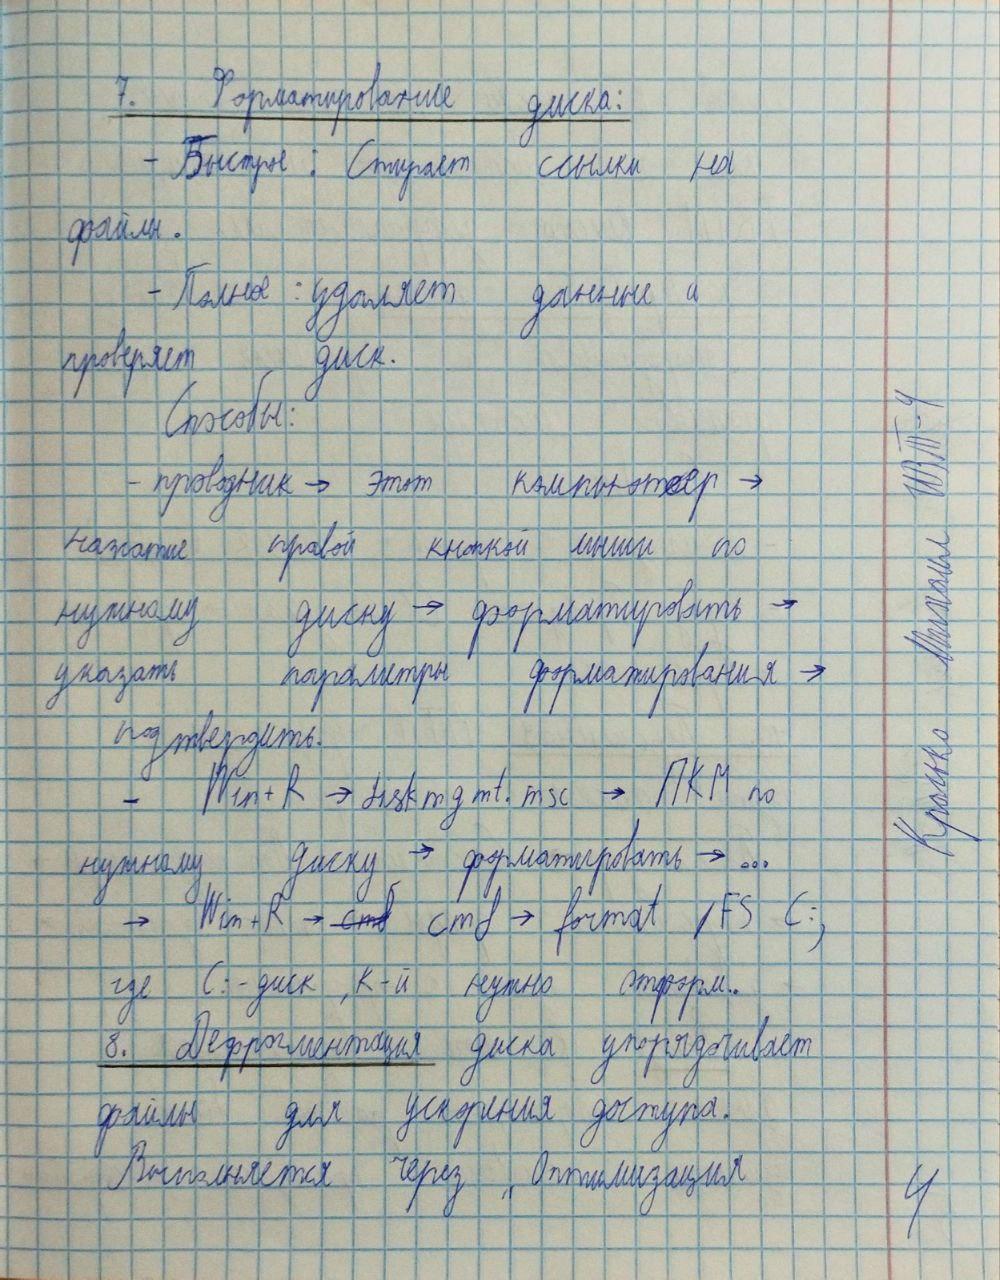 7. Форматирование диска:
- Быстрое: Стирает ссылки на
файлы.
- Полное: удаляет данные и
проверяет диск.
Способы:
- проводник → этот компьютер →
нажатие правой кнопкой мыши по
нужному диску → форматировать →
указать параметры форматирования →
подтвердить.
- Win+R → diskmgmt.msc → ПКМ по
нужному диску → форматировать → ...
→ Win+R → cmd → format /FS C:,
где C: - диск, к-й нужно отформ..
8. Дефрагментация диска упорядочивает
файлы для ускорения доступа.
Выполняется через „Оптимизация
Михаил
4